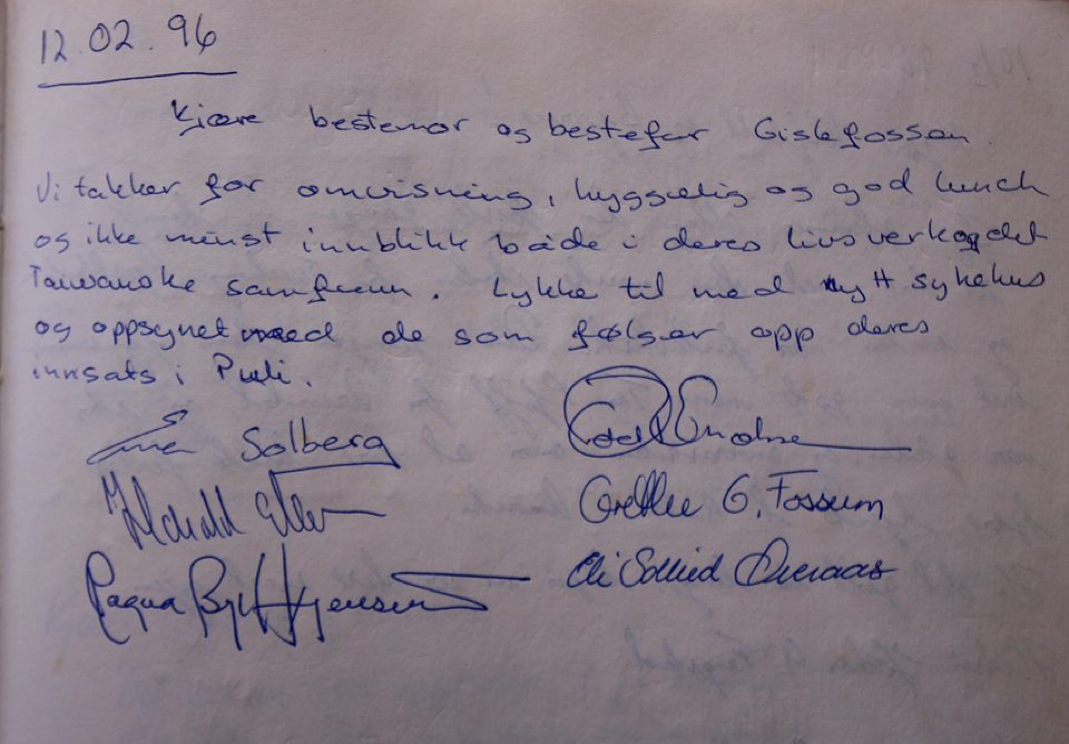 12.02.96
Kjære bestemor og bestefar Gislefossen
Vi takker for omvisning, hyggelig og god lunch
og ikke minst innblikk både i deres livsverk og det
Taiwanske samfunn. Lykke til med nytt sykehus
og oppsynet med de som følger opp deres
innsats i Puli.
Erna Solberg
Grethe G. Fossum
Eli Sollied Øveraas